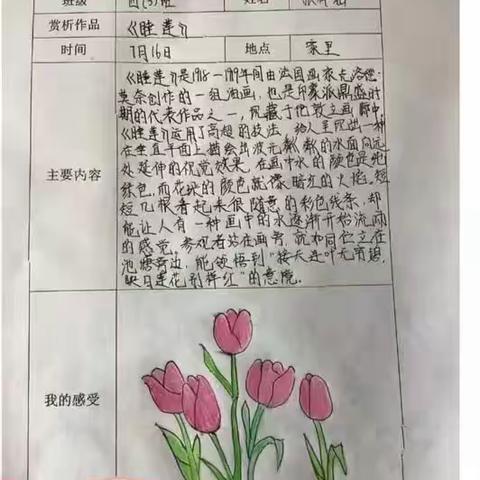 班级 四(3)班 姓名
赏析作品 《睡莲》
时间 7月16日 地点 家里
主要内容
《睡莲》是1918—1919年间由法国画家克洛德·
莫奈创作的一组油画,也是印象派鼎盛时
期的代表作品之一,现藏于伦敦立画廊中,
《睡莲》运用了高超的技法,给人呈现出一种
在垂直平面上描绘出波光粼粼的水面向远
处延伸的视觉效果。在画中水的颜色是纯
绿色,而花块的颜色就像暗红的火挖。短
短几根看起来很随意的彩色线条,却
能让人有一种画中的水逐渐开始流动
的感觉。参观者站在画旁,就如同伫立在
池塘旁边,能领悟到"接天连叶无穷碧,
映日莲花别样红"的意境。
我的感受